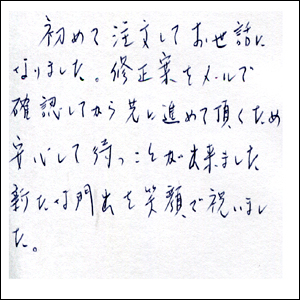 初めて注文してお世話に
なりました。修正案をメールで
確認してから先に進めて頂くため
安心して待つことが出来ました
新たな門出を笑顔で祝いまし
た。